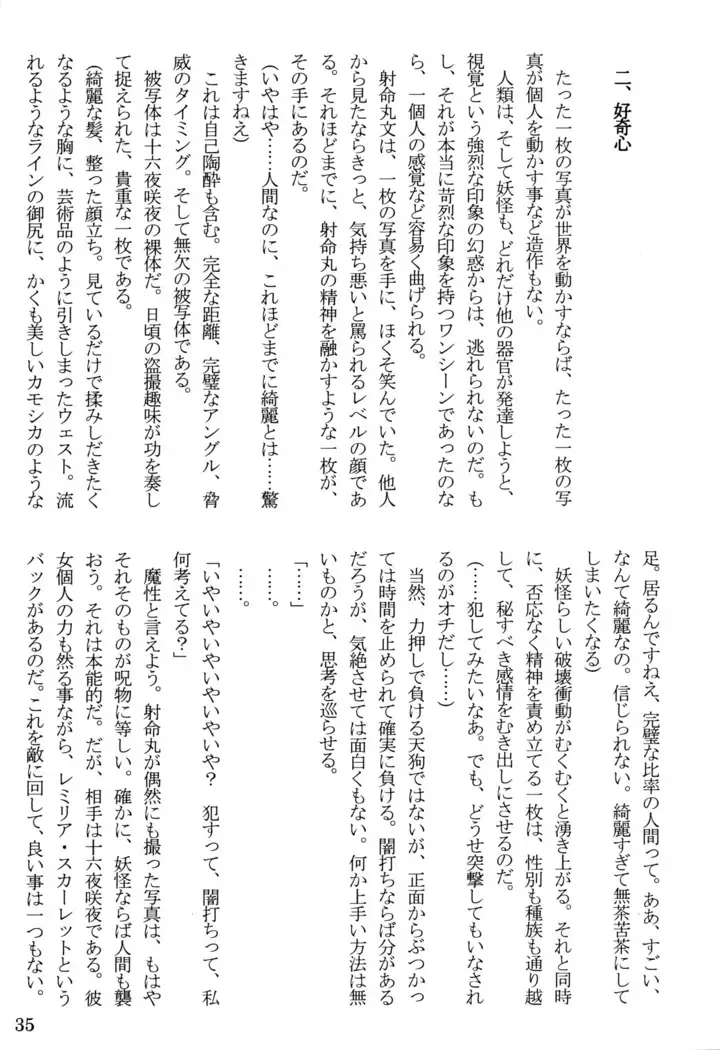 二、好奇心
たった一枚の写真が世界を動かすならば、たった一枚の写
真が個人を動かす事など造作もない。
人類は、そして妖怪も、どれだけ他の器官が発達しようと、
視覚という強烈な印象の幻惑からは、逃れられないのだ。も
し、それが本当に苛烈な印象を持つワンシーンであったのな
ら、一個人の感覚など容易く曲げられる。
射命丸文は、一枚の写真を手に、ほくそ笑んでいた。他人
から見たならきっと、気持ち悪いと罵られるレベルの顔であ
る。それほどまでに、射命丸の精神を融かすような一枚が、
その手にあるのだ。
(いやはや……人間なのに、これほどまでに綺麗とは……驚
きますねえ)
これは自己陶酔も含む。完全な距離、完璧なアングル、脅
威のタイミング。そして無欠の被写体である。
被写体は十六夜咲夜の裸体だ。日頃の盗撮趣味が功を奏し
て捉えられた、貴重な一枚である。
(綺麗な髪、整った顔立ち。見ているだけで揉みしだきたく
なるような胸に、芸術品のように引きしまったウェスト。流
れるようなラインの御尻に、かくも美しいカモシカのような
足。居るんですねえ、完璧な比率の人間って。ああ、すごい、
なんて綺麗なの。信じられない。綺麗すぎて無茶苦茶にして
しまいたくなる)
妖怪らしい破壊衝動がむくむくと湧き上がる。それと同時
に、否応なく精神を責め立てる一枚は、性別も種族も通り越
して、秘すべき感情をむき出しにさせるのだ。
(……犯してみたいなあ。でも、どうせ突撃してもいなされ
るのがオチだし……)
当然、力押しで負ける天狗ではないが、正面からぶつかっ
ては時間を止められて確実に負ける。闇打ちならば分がある
だろうが、気絶させては面白くもない。何か上手い方法は無
いものかと、思考を巡らせる。
「……」
……。
……。
「いやいやいやいやいやいや？　犯すって、闇打ちって、私
何考えてる？」
魔性と言えよう。射命丸が偶然にも撮った写真は、もはや
それそのものが呪物に等しい。確かに、妖怪ならば人間も襲
おう。それは本能的だ。だが、相手は十六夜咲夜である。彼
女個人の力も然る事ながら、レミリア・スカーレットという
バックがあるのだ。これを敵に回して、良い事は一つもない。
35